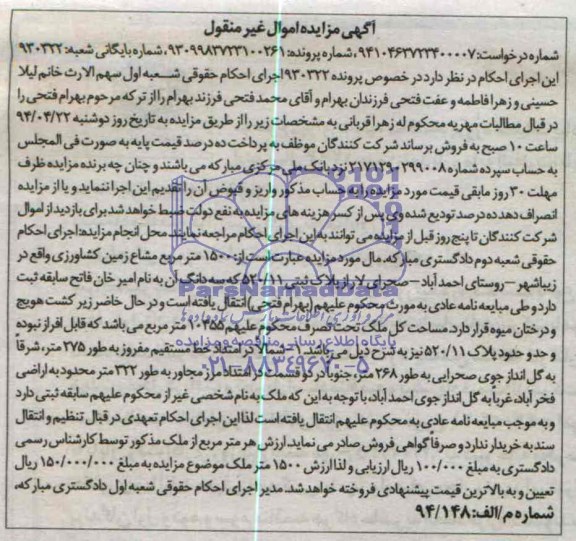 آگهی مزایده اموال غیر منقول
شماره درخواست: ۹۴۱۰۴۶۳۷۲۳۴۰۰۰۰۷، شماره پرونده: ۹۳۰۹۹۸۳۷۲۳۱۰۰۲۶۱، شماره بایگانی شعبه: ۹۳۰۳۲۲
این اجرای احکام در نظر دارد در خصوص پرونده ۹۳۰۳۲۲ اجرای احکام حقوقی شعبه اول سهم الارث خانم لیلا
حسینی و زهرا فاطمه و عفت فتحی فرزندان بهرام و آقای محمد فتحی فرزند بهرام را از ترکه مرحوم بهرام فتحی را
در قبال مطالبات مهریه محکوم له زهرا قربانی به مشخصات زیر را از طریق مزایده به تاریخ روز دوشنبه ۹۴/۰۴/۲۲
ساعت ۱۰ صبح به فروش برساند شرکت کنندگان موظف به پرداخت ده درصد قیمت پایه به صورت فی المجلس
به حساب سپرده شماره ۲۱۷۱۲۹۰۲۹۹۰۰۸ نزد بانک ملی مرکزی مبارکه می باشند و چنان چه برنده مزایده ظرف
مهلت ۳۰ روز مابقی قیمت مورد مزایده را به حساب مذکور واریز و قبوض آن را تقدیم این اجرا ننماید و یا از مزایده
انصراف دهد ده درصد تودیع شده وی پس از کسر هزینه های مزایده به نفع دولت ضبط خواهد شد برای بازدید از اموال
شرکت کنندگان تا پنج روز قبل از مزایده می توانند به این اجرای احکام مراجعه نمایند. محل انجام مزایده: اجرای احکام
حقوقی شعبه دوم دادگستری مبارکه. مال مورد مزایده عبارت است از: ۱۵۰۰ متر مربع مشاع زمین کشاورزی واقع در
زیباشهر – روستای احمد آباد – صحرای لار از پلاک ثبتی ۵۲۰/۱۱ که سه دانگ آن به نام امیر خان فاتح سابقه ثبت
دارد و طی مبایعه نامه عادی به مورث محکوم علیهم (بهرام فتحی) انتقال یافته است و در حال حاضر زیر کشت هویج
و درختان میوه قرار دارد. مساحت کل ملک تحت تصرف محکوم علیهم ۱۰۴۵۵ متر مربع می باشد که قابل افراز نبوده
و حد و حدود پلاک ۵۲۰/۱۱ نیز به شرح ذیل می باشد. ۱- شمالا در امتداد خط مستقیم مفروز به طور ۲۷۵ متر، شرقا
به گل انداز جوی صحرایی به طور ۲۶۸ متر، جنوبا در دو قسمت در امتداد مرز مجاور به طور ۳۲۲ متر محدود به اراضی
فخر آباد، غربا به گل انداز جوی احمد آباد، با توجه به این که ملک به نام شخصی غیر از محکوم علیهم سابقه ثبتی دارد
و به موجب مبایعه نامه عادی به محکوم علیهم انتقال یافته است لذا این اجرای احکام تعهدی در قبال تنظیم و انتقال
سند به خریدار ندارد و صرفا گواهی فروش صادر می نماید. ارزش هر متر مربع از ملک مذکور توسط کارشناس رسمی
دادگستری به مبلغ ۱۰۰/۰۰۰ ریال ارزیابی و لذا ارزش ۱۵۰۰ متر ملک موضوع مزایده به مبلغ ۱۵۰/۰۰۰/۰۰۰ ریال
تعیین و به بالاترین قیمت پیشنهادی فروخته خواهد شد. مدیر اجرای احکام حقوقی شعبه اول دادگستری مبارکه،
شماره م/الف: ۹۴/۱۴۸
ParsNamadData
پایگاه اطلاع رسانی مناقصه و مزایده
۰۲۱-۸۸۳۴۹۶۷۰-۵